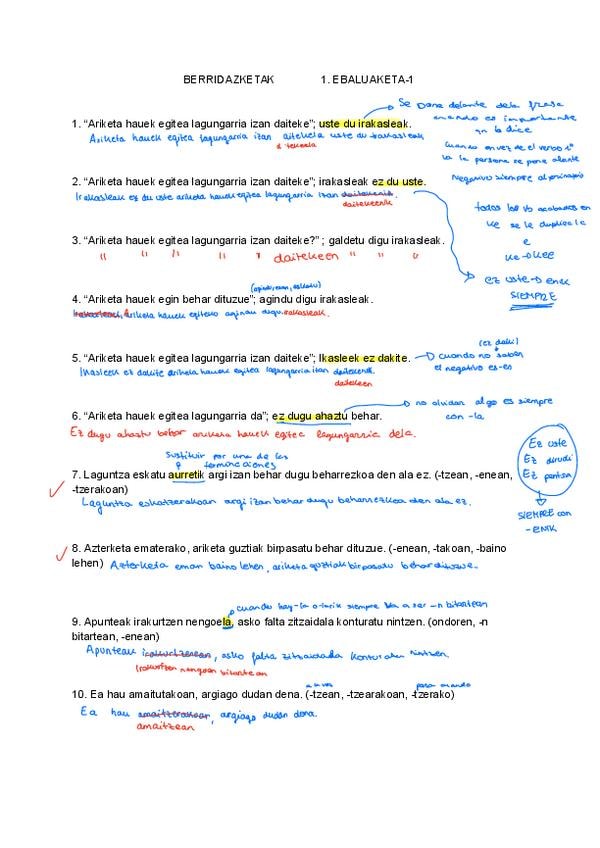 BERRIDAZKETAK 1. EBALUAKETA-1
Se pone delante de la frase
cuando es importante
qn lo dice
1. “Ariketa hauek egitea lagungarria izan daiteke”; uste du irakasleak.
Ariketa hauek egitea lagungarria izan daitekela uste du irakasleak
cuando en vez de el verbo
la persona se pone alante
Negativo siempre al principio
2. “Ariketa hauek egitea lagungarria izan daiteke”; irakasleak ez du uste.
Irakasleak ez du uste ariketa hauek egitea lagungarria izan
daitekeenik
todos los vb acabados en
ke se le duplica la
e
ke→kee
3. “Ariketa hauek egitea lagungarria izan daiteke?” ; galdetu digu irakasleak.
" " " " " daitekeen " " "
ez uste→enik
SIEMPRE
4. “Ariketa hauek egin behar dituzue”; agindu digu irakasleak.
ariketa hauek egiteko agindu digu irakasleak.
(ez daki)
5. “Ariketa hauek egitea lagungarria izan daiteke”; Ikasleek ez dakite.
→ cuando no saben
el negativo es-en
Ikasleek ez dakite ariketa hauek egitea lagungarria izan
daitekeen
6. “Ariketa hauek egitea lagungarria da”; ez dugu ahaztu behar.
→ no olvidar algo es siempre
con -la
Ez dugu ahaztu behar ariketa hauek egitea lagungarria dela.
Ez uste
Ez dirudi
Ez pentsa
SIEMPRE con
-ENIK
Sustituir por una de las
terminaciones
7. Laguntza eskatu aurretik argi izan behar dugu beharrezkoa den ala ez. (-tzean, -enean,
-tzerakoan)
Laguntza eskatzerakoan argi izan behar dugu beharrezkoa den ala ez.
8. Azterketa ematerako, ariketa guztiak birpasatu behar dituzue. (-enean, -takoan, -baino
lehen) Azterketa eman baino lehen, ariketa guztiak birpasatu behar dituzue.
cuando hay -la o -larik siempre va a ser -n bitartean
9. Apunteak irakurtzen nengoela, asko falta zitzaidala konturatu nintzen. (ondoren, -n
bitartean, -enean)
Apunteak irakurtzenean, asko falta zitzaidala konturatu nintzen.
irakurtzen nengoen bitartean
para cuando
10. Ea hau amaitutakoan, argiago dudan dena. (-tzean, -tzearakoan, -tzerako)
Ea hau amaitzerakoan, argiago dudan dena.
amaitzean